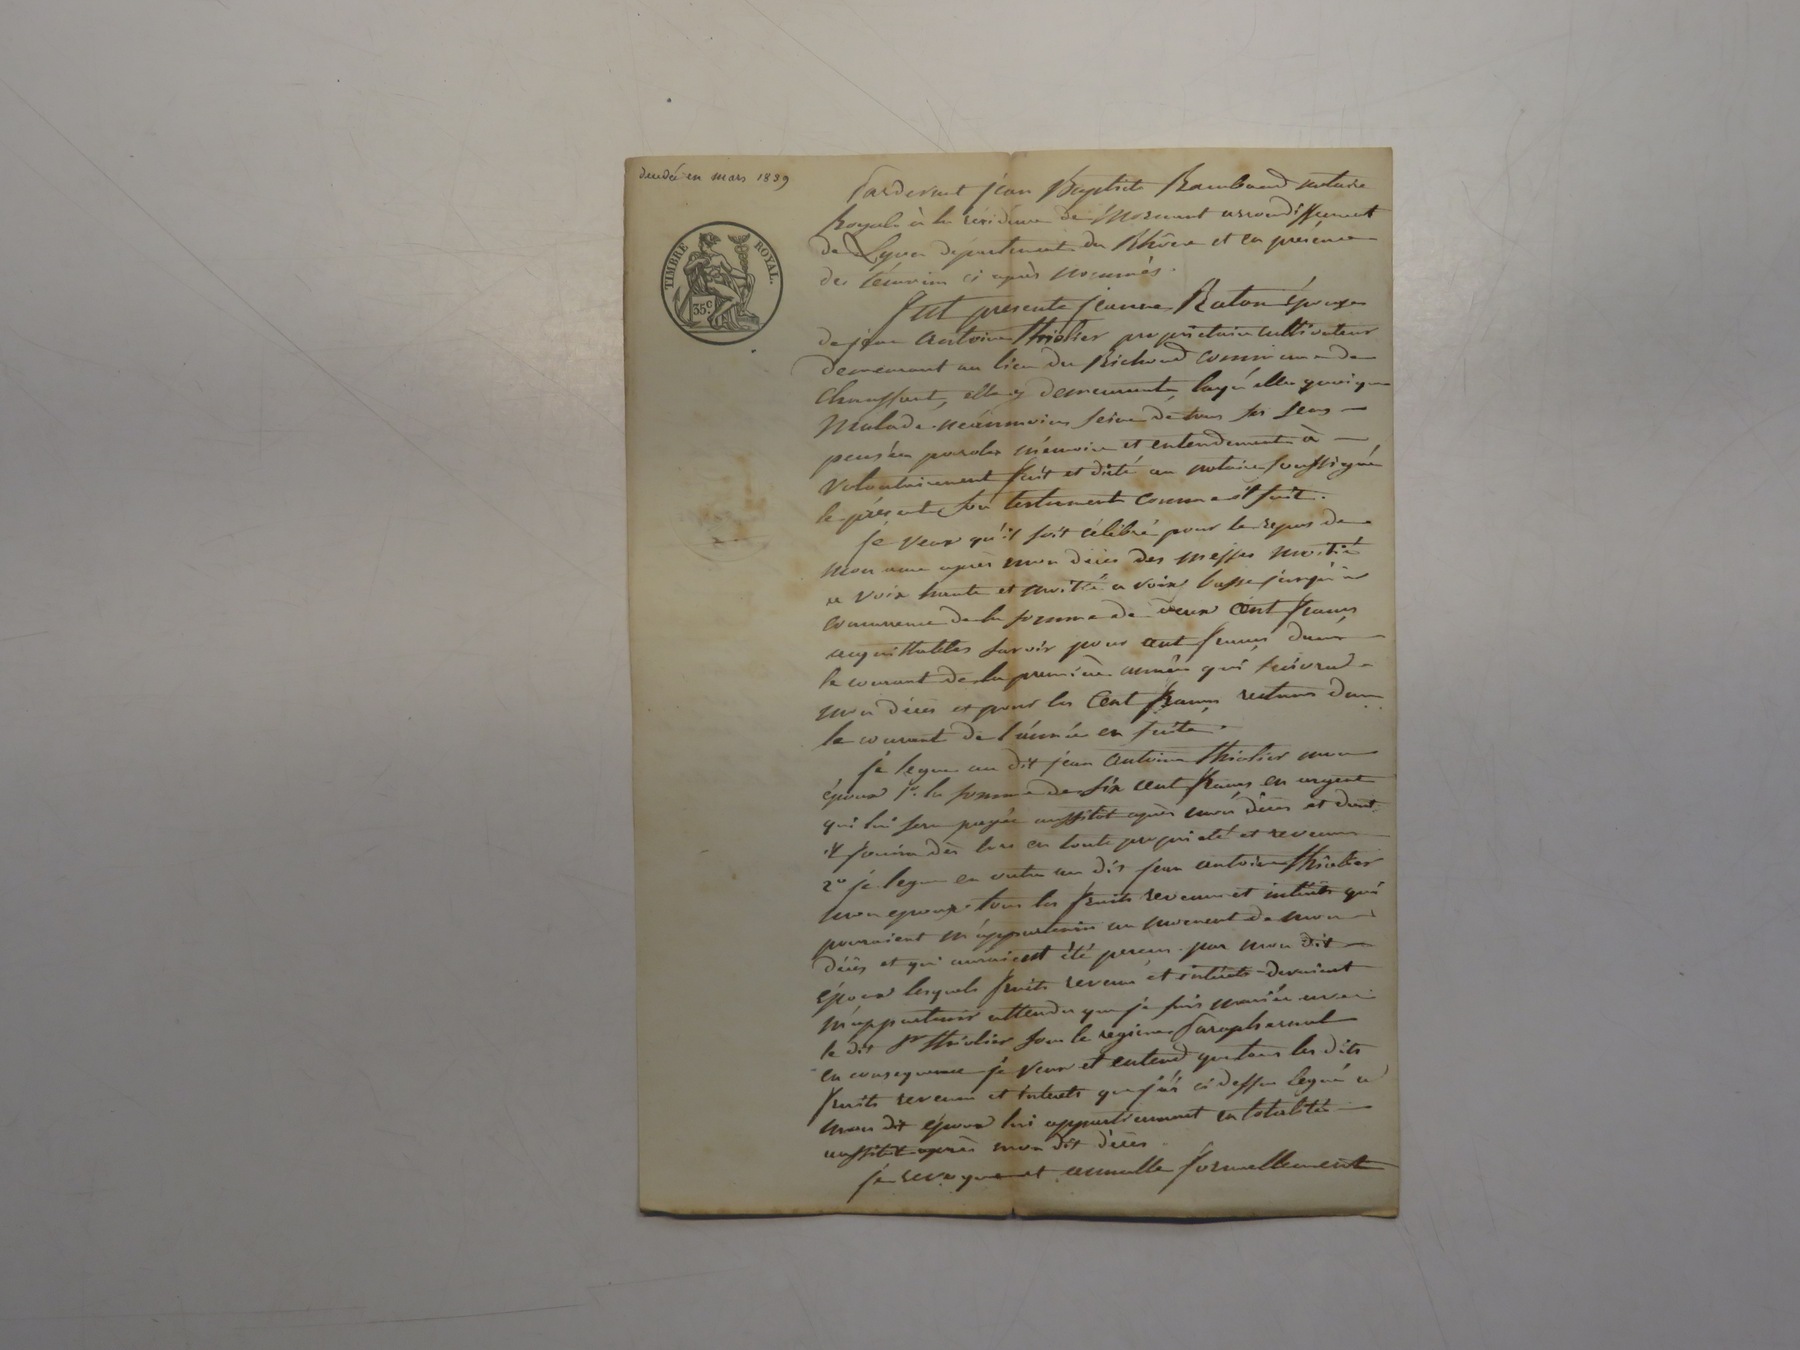 en mars 1839
TIMBRE ROYAL.
35c.
Pardevant jean Baptiste Rambaud notaire
Royal à la résidence de Mornant arrondissement
de Lyon département du Rhône et en présence
des témoins ci après nommés.
Fut presente jeanne Raton épouse
de jean Antoine thiolier propriétaire cultivateur
demeurant au lieu du Richoud commune de
Chaussant, elle y demeurante laquelle quoique
Malade néanmoins saine de tous ses sens
pensée parole mémoire et entendement à
volontairement fait et dicté au notaire soussigné
le présent son testament comme il suit.
je veux qu'il soit célébré pour le repos de
mon ame après mon décès des messes moitié
a voix haute et moitié a voix basse jusqu'à
concurrence de la somme de deux cent francs
acquittables savoir pour cent francs dans
le courant de la première année qui suivra
mon décès et pour les Cent francs restans dans
le courant de l'année en suite.
je legue au dit jean antoine thiolier mon
époux 1o. la somme de six cent francs en argent
qui lui sera payée aussitot après mon décès et dont
il jouira dès lors en toute propriété et revenus
2o je legue en outre au dit jean antoine thiolier
mon epoux tous les fruits revenus et intérêts qui
pourraient m'appartenir au moment de mon
décès et qui auraient été perçus par mon dit
époux lesquels fruits revenus et intérêts devraient
m'appartenir attendu que je suis mariée avec
le dit Sr thiolier sous le régime Paraphernal
en consequence je veux et entend que tous les dits
fruits revenus et interets que j'ai ci dessus legué a
mon dit époux lui appartiennent en totalité
aussitot après mon dit décès.
je revoque et annulle formellement